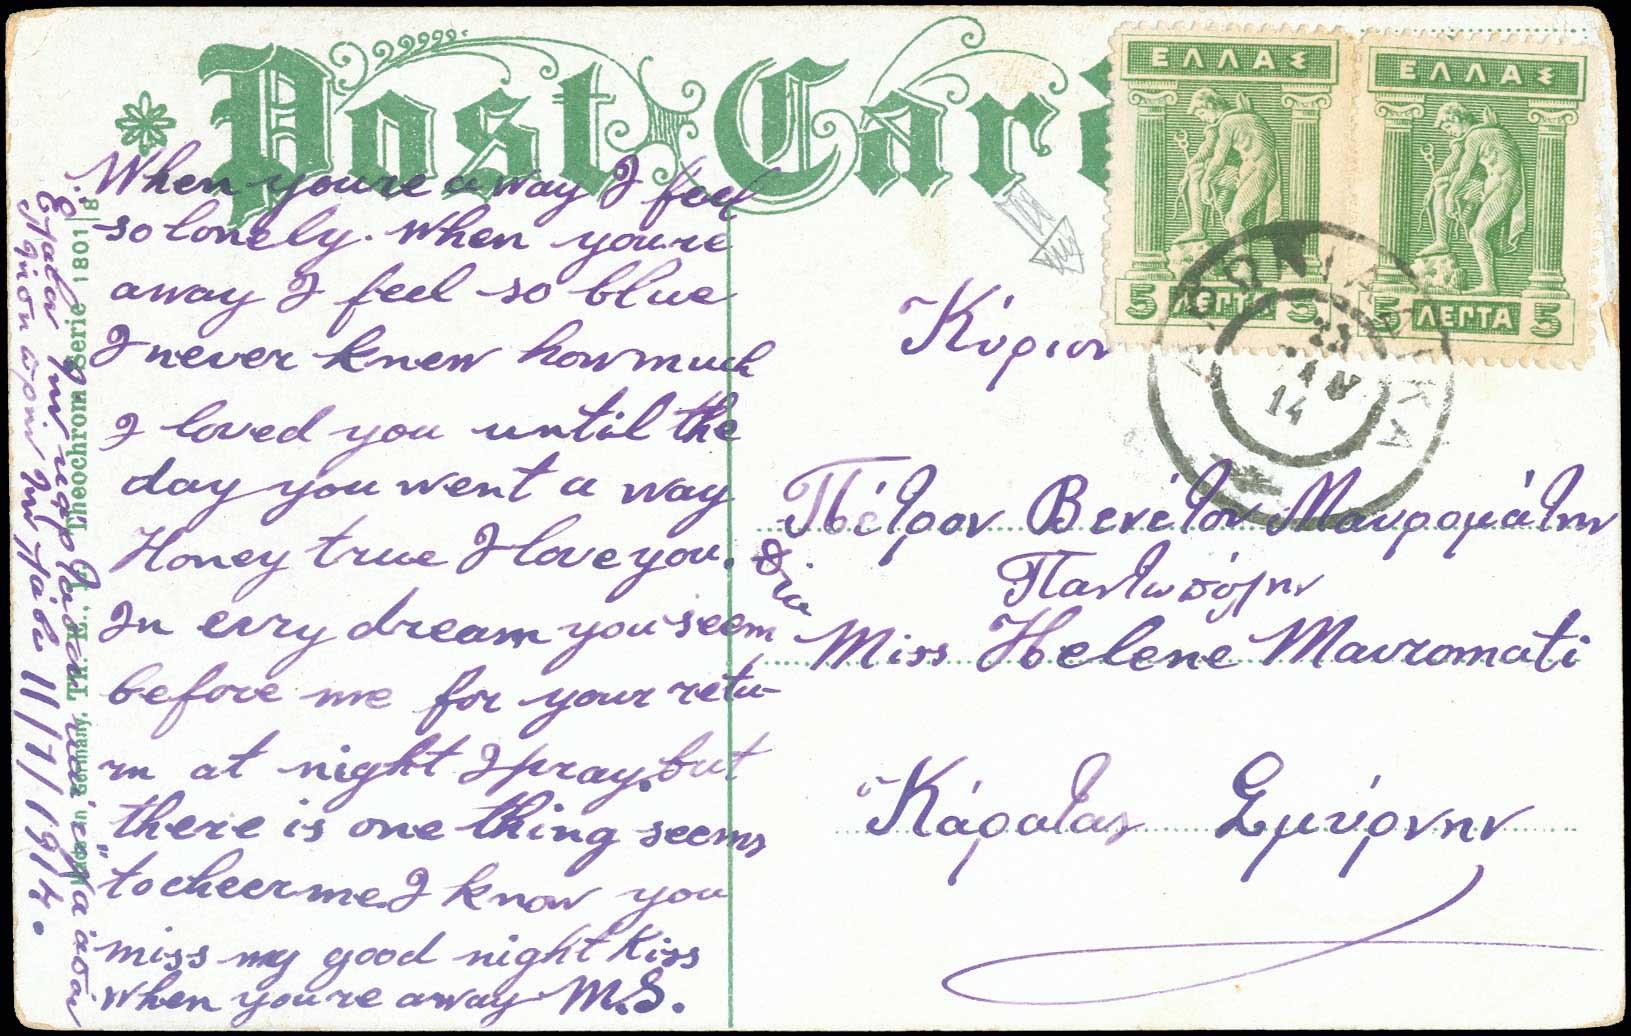 Post Card
ΕΛΛΑΣ
5 ΛΕΠΤΑ 5
ΕΛΛΑΣ
5 ΛΕΠΤΑ 5
14
When youre away I feel
so lonely. When you're
away I feel so blue
I never knew how much
I loved you until the
day you went a way
Honey true I love you.
In evry dream you seem
before me for your retu-
rn at night I pray, but
there is one thing seems
to cheer me I know you
miss my good night Kiss
When you're away M.S.
Κύριον
Πέτρον Βενέτον Μαυρομάτην
Παντωπόλην
διὰ
Miss Helene Mavromati
Κάρατας Σμύρνην
Theochrom Serie 1801/8
11/1/1914.